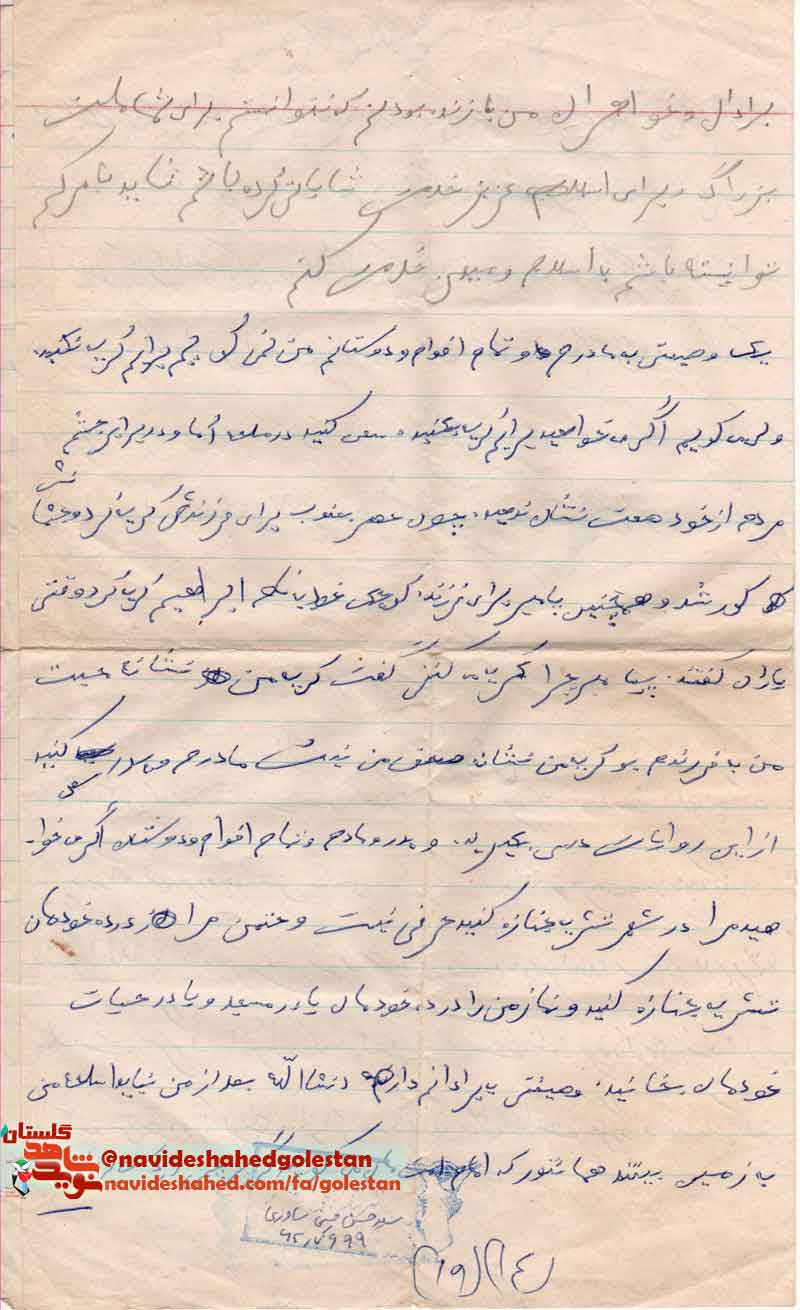 برادران و خواهران من تا زنده بودم که نتوانستم برای شما ملت
بزرگ و برای اسلام عزیز خدمتی شایانی کرده باشم شاید با مرگم
توانیسته باشم با اسلام و میهن خدمتی کنم
یک وصیتی به مادرم و تمام اقوام و دوستانم من نمی گویم برایم گریه نکنید.
ولی می گویم اگر می خواهید برایم گریه بکنید سعی کنید در ملت اما و در برابر چشم
مردم از خود ضعف نشان ندهید. چون حضر یعقوب برای فرزندش گریه کرد و چشمانش
کور شد و همچنین پیامبر برای فرزند کوچک خود بنام ابراهیم گریه کرد وقتی
یاران گفتند. پیامبر چرا گریه می کنی گفت گریه من نشانه محبت
من به فرزندم بو گریه من نشان ضعف من نیست مادرم و پدر سعی کنید
از این روایات درس بگیرید. و پدر و مادرم و تمام اقوام و دوستان اگر می خوا
هید مرا در شهر تشریه جنازه کنید حرفی نیست و حتمن مرا در ده خودمان
تشریه جنازه کنید و نماز من را در ده خودمان یا در مسجد و یا در حیات
خودمان بخوانید. وصیتی به برادرانم دارم انشاالله بعد از من نباید اسلحه من
به زمین بیفتد همانتور که امام
سید حسن حسینی
(۱۴) (۱۹)
گلستان
نوید شاهد
@navideshahedgolestan
navideshahed.com/fa/golestan